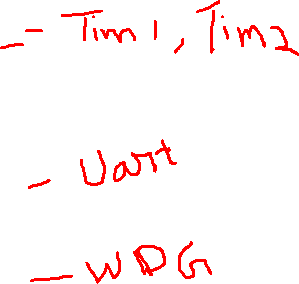 - Tim1, Tim2
- Uart
- WDG